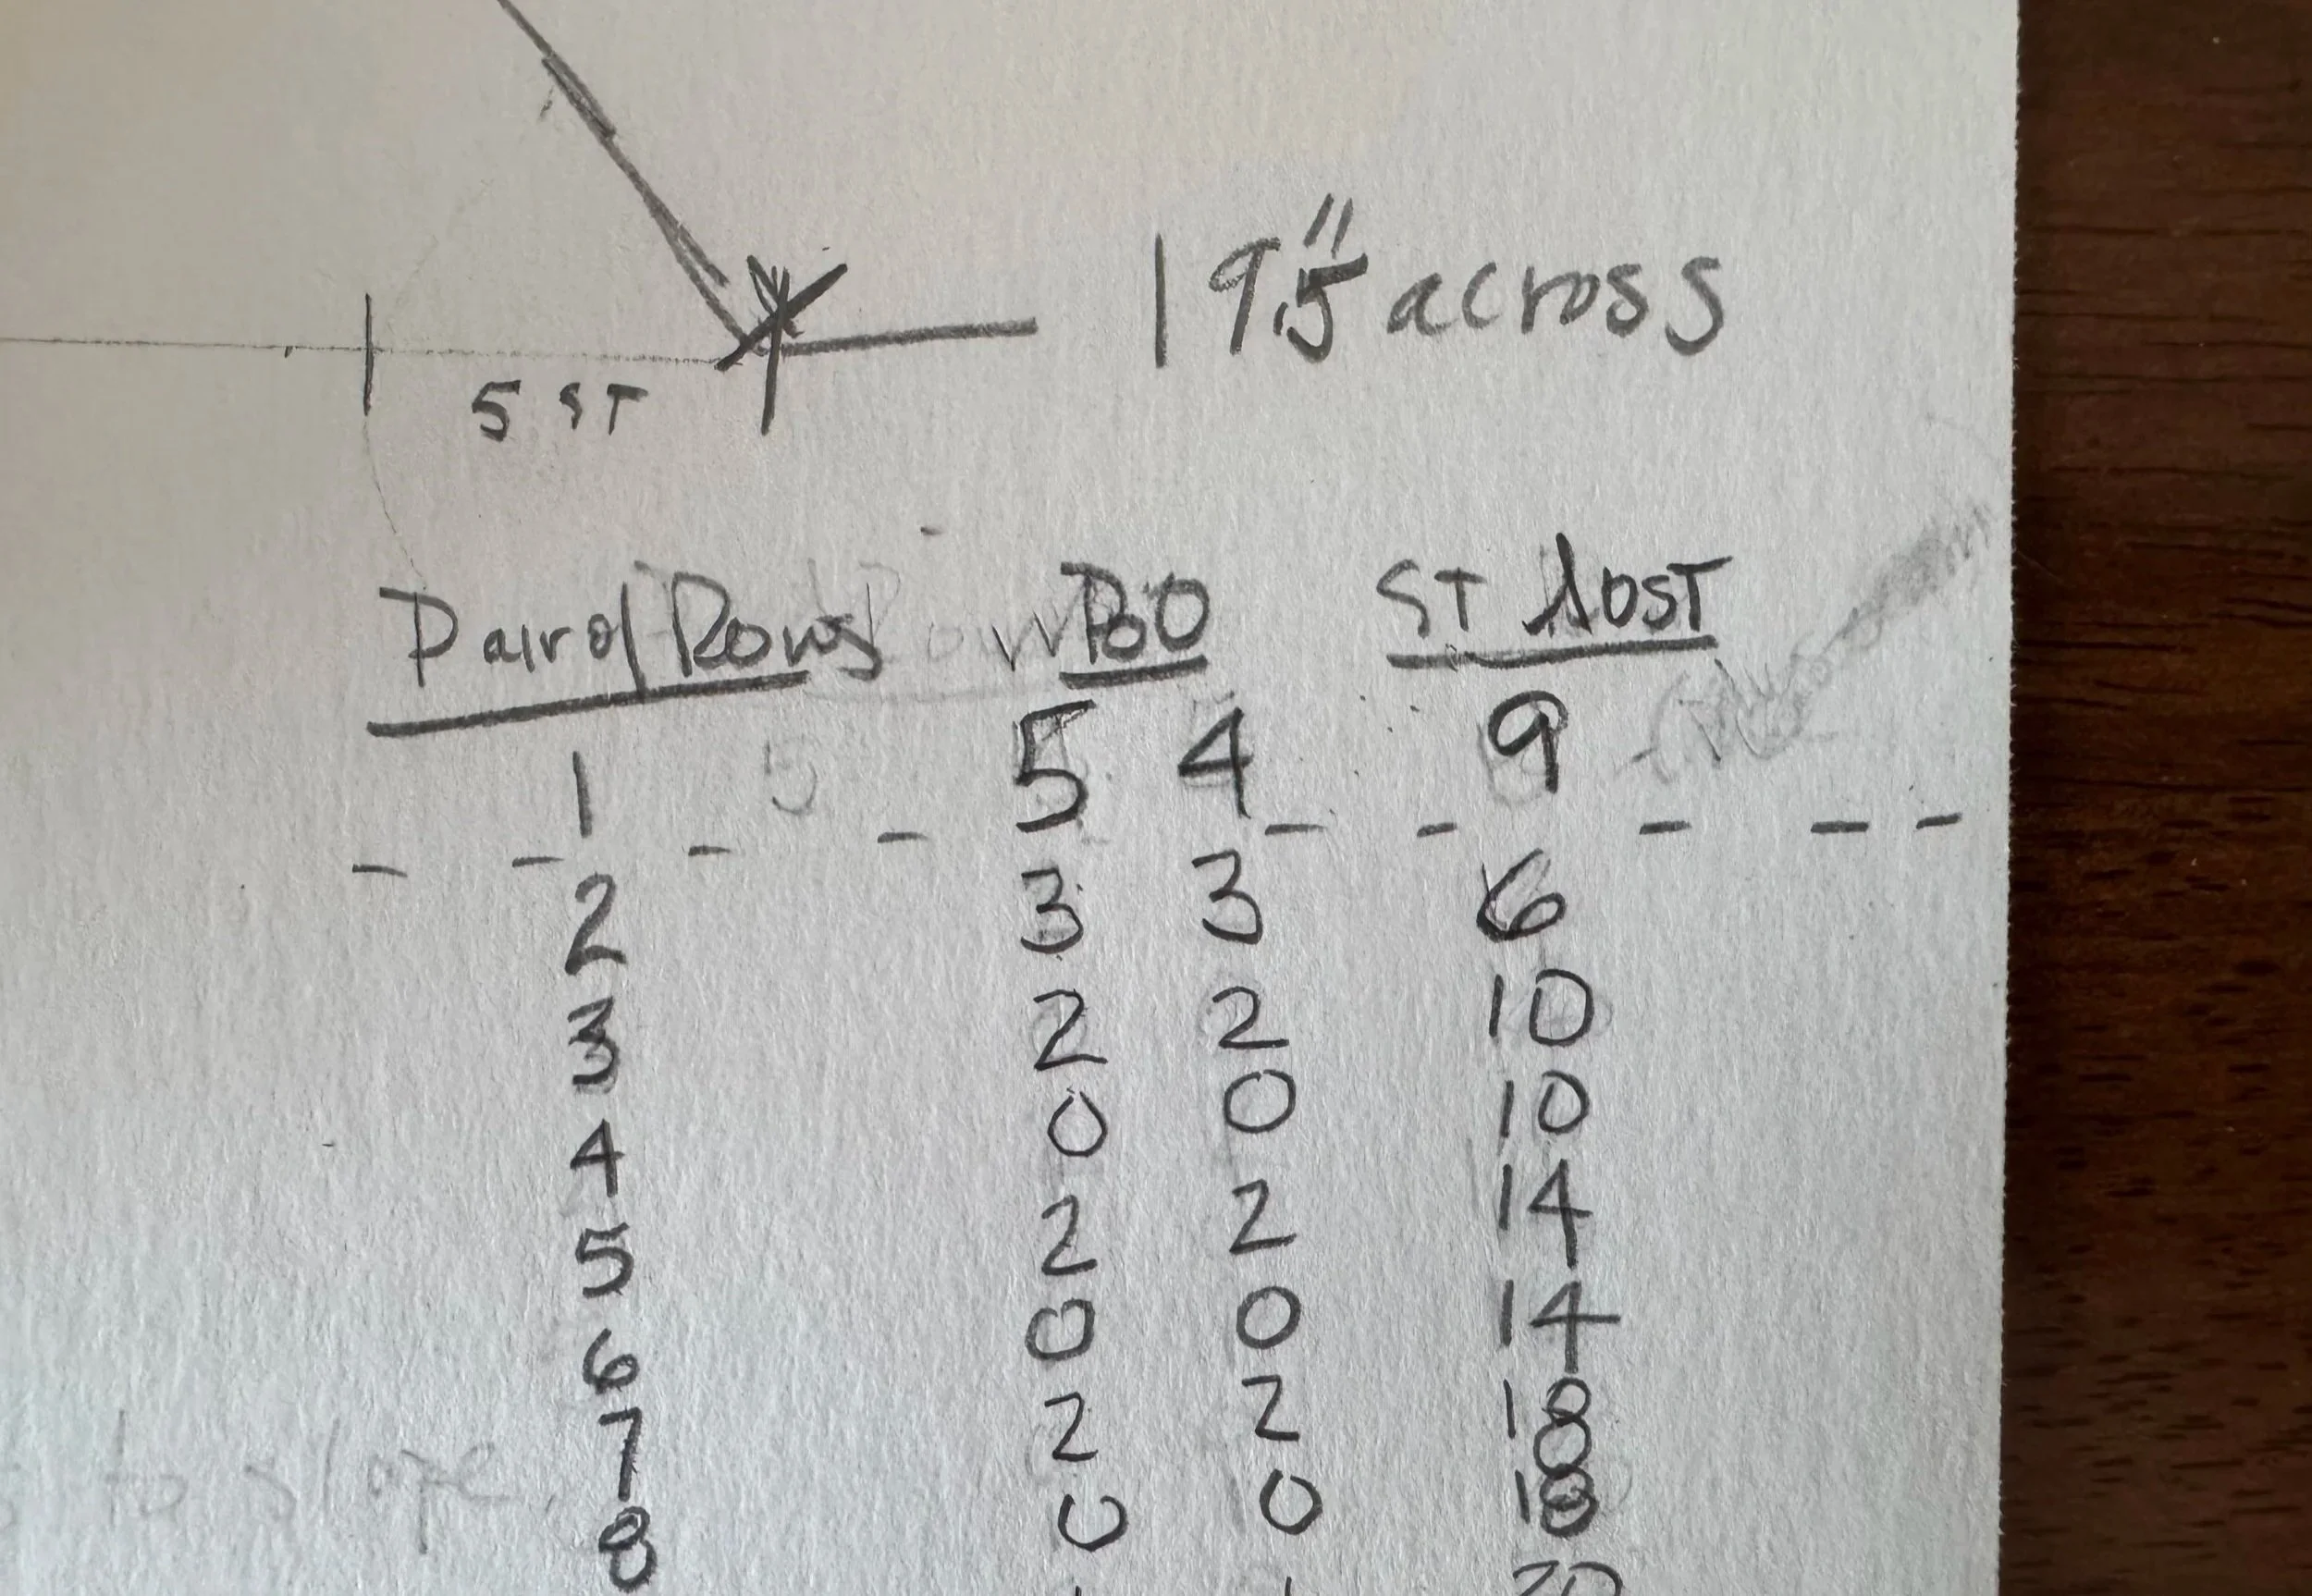 19.5" across
5 ST
Pair of Rows BO ST LOST
1 5 4 9
2 3 3 6
3 2 2 10
4 0 0 10
5 2 2 14
6 0 0 14
7 2 2 18
8 0 0 18
20
to slope.